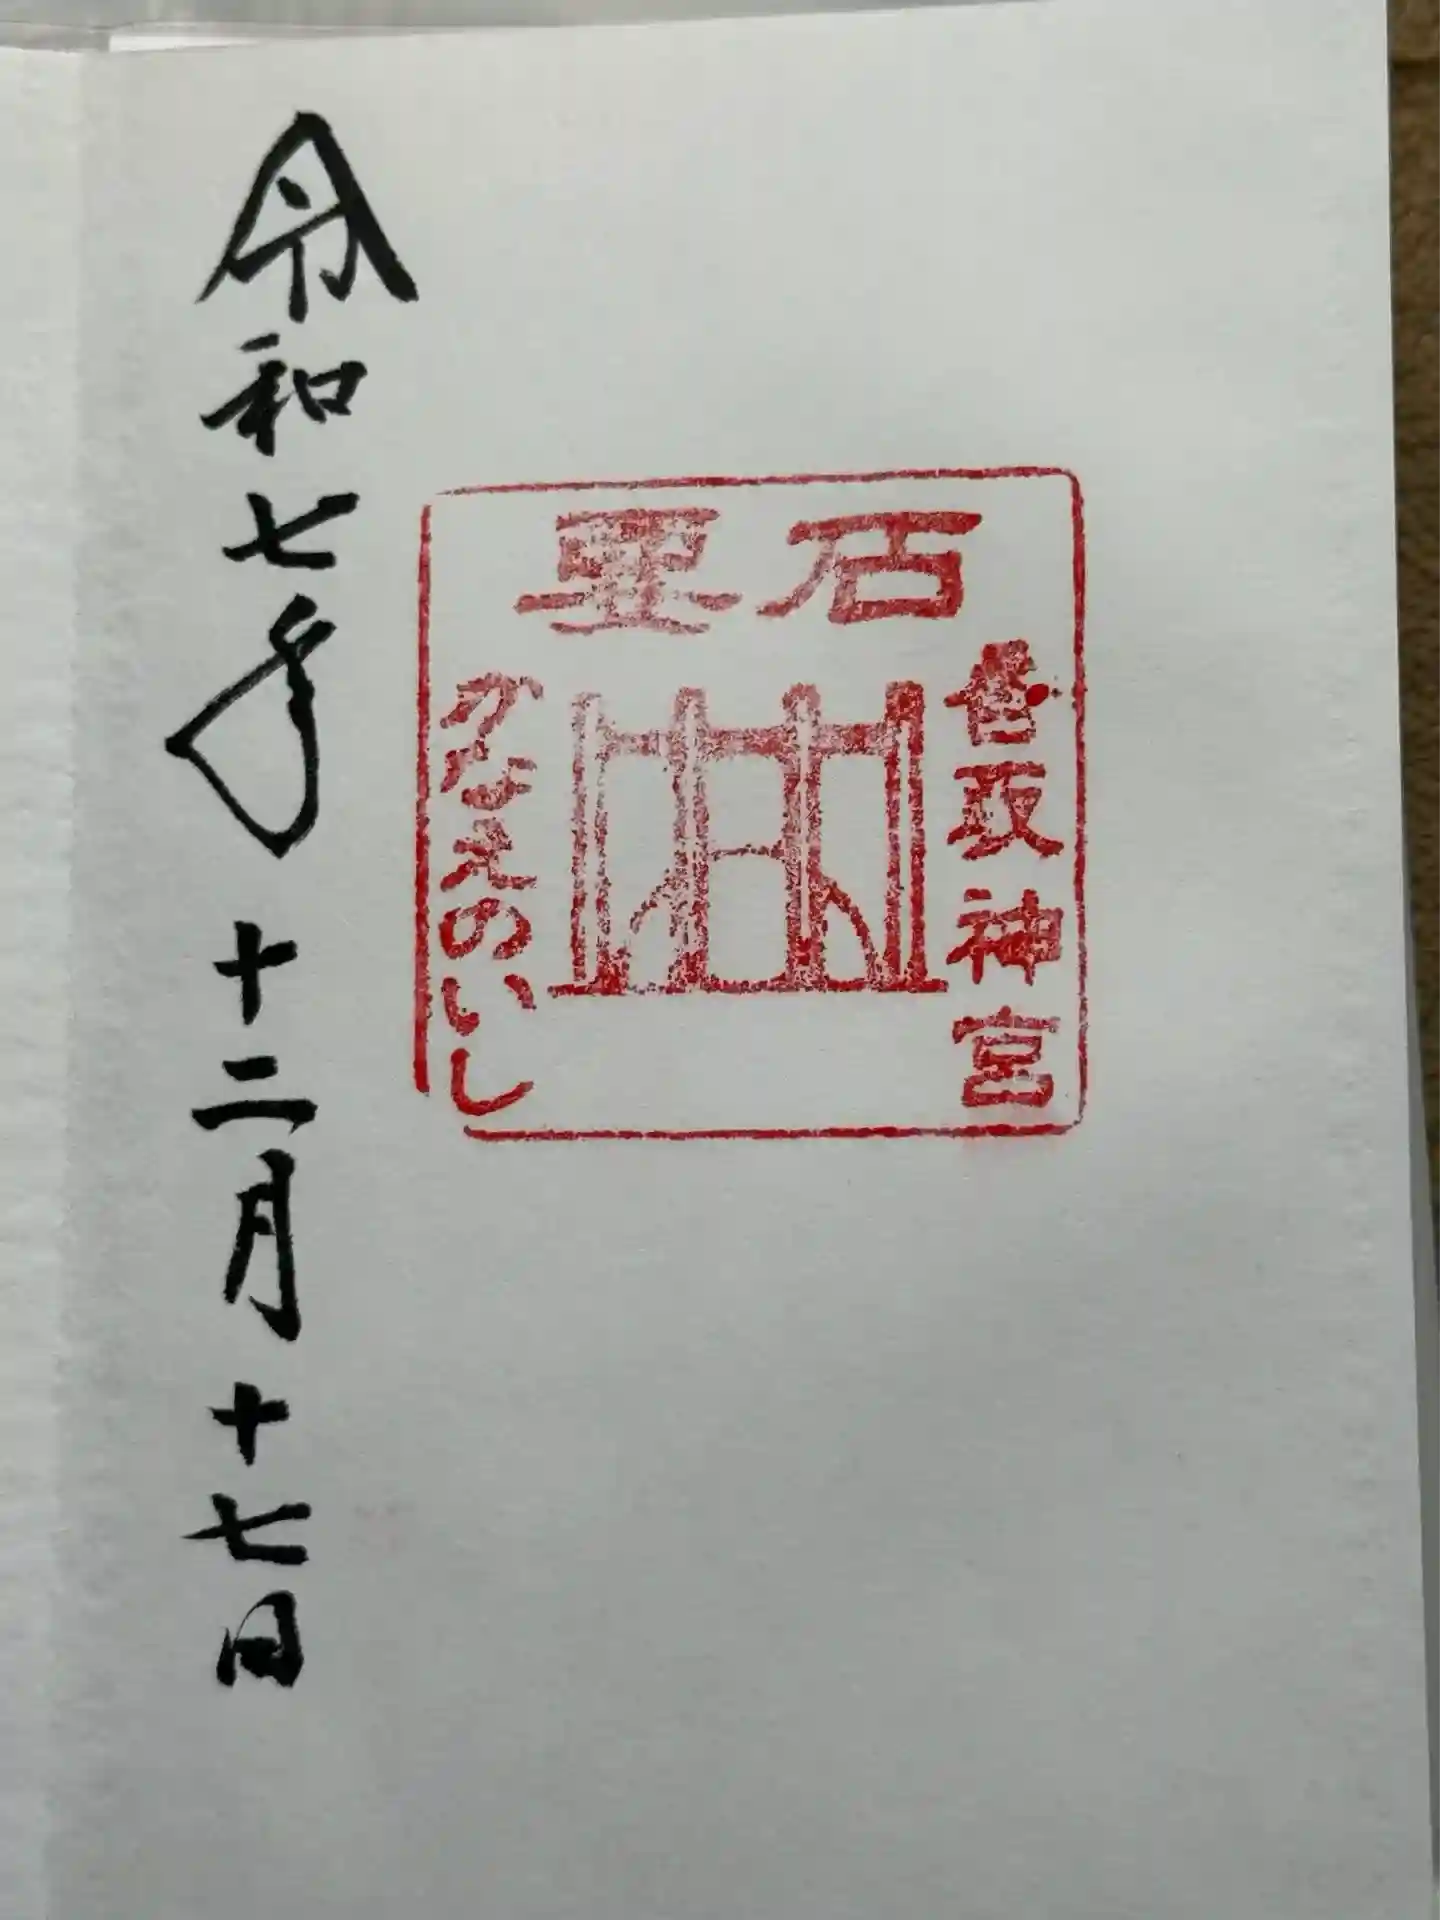 要石
香取神宮
かなえのいし
令和七年十二月十七日